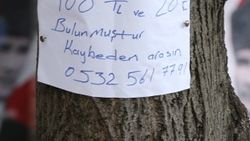 100 TL ve 20 €
Bulunmuştur
Kaybeden arasın
0532 561 77 91